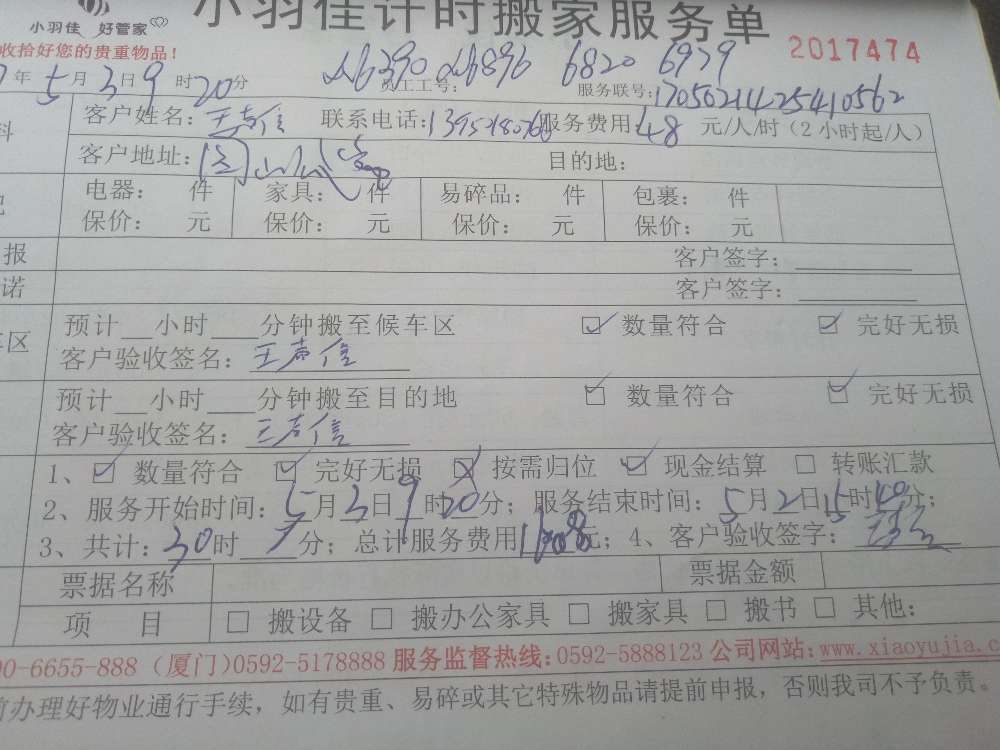 小羽佳计时搬家服务单
小羽佳 好管家
收拾好您的贵重物品！
2017474
年5月3日9时20分 员工工号：6390 6896 6820 6939 服务联号：1705021425410562
客户姓名：王志信 联系电话： 服务费用：48 元/人/时（2小时起/人）
客户地址： 目的地：
电器： 件 家具： 件 易碎品： 件 包裹： 件
保价： 元 保价： 元 保价： 元 保价： 元
报 客户签字：
诺 客户签字：
车区 预计__小时___分钟搬至候车区 ☑ 数量符合 ☑ 完好无损
客户验收签名：王志信
预计__小时___分钟搬至目的地 ☑ 数量符合 ☑ 完好无损
客户验收签名：王志信
1、☑ 数量符合 ☑ 完好无损 ☒ 按需归位 ☑ 现金结算 □ 转账汇款
2、服务开始时间：5月3日9时20分；服务结束时间：5月2日15时40分；
3、共计：30时 分；总计服务费用 元；4、客户验收签字：
票据名称 票据金额
项 目 □ 搬设备 □ 搬办公家具 □ 搬家具 □ 搬书 □ 其他：
00-6655-888（厦门）0592-5178888 服务监督热线：0592-5888123 公司网站：www.xiaoyujia.c
前办理好物业通行手续，如有贵重、易碎或其它特殊物品请提前申报，否则我司不予负责。